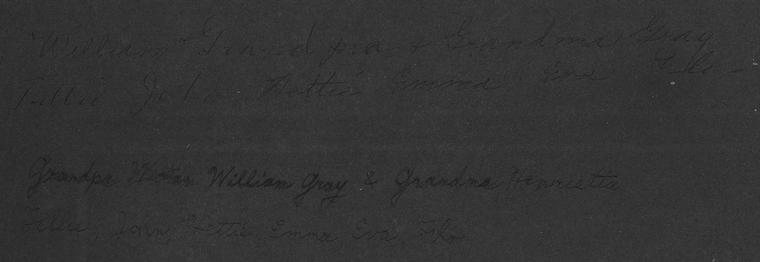 William Grandpa & Grandma Gray
Tillie John Hattie Emma Eva
Grandpa William Gray & Grandma Henrietta
Tillie, John, Hettie, Emma Eva,